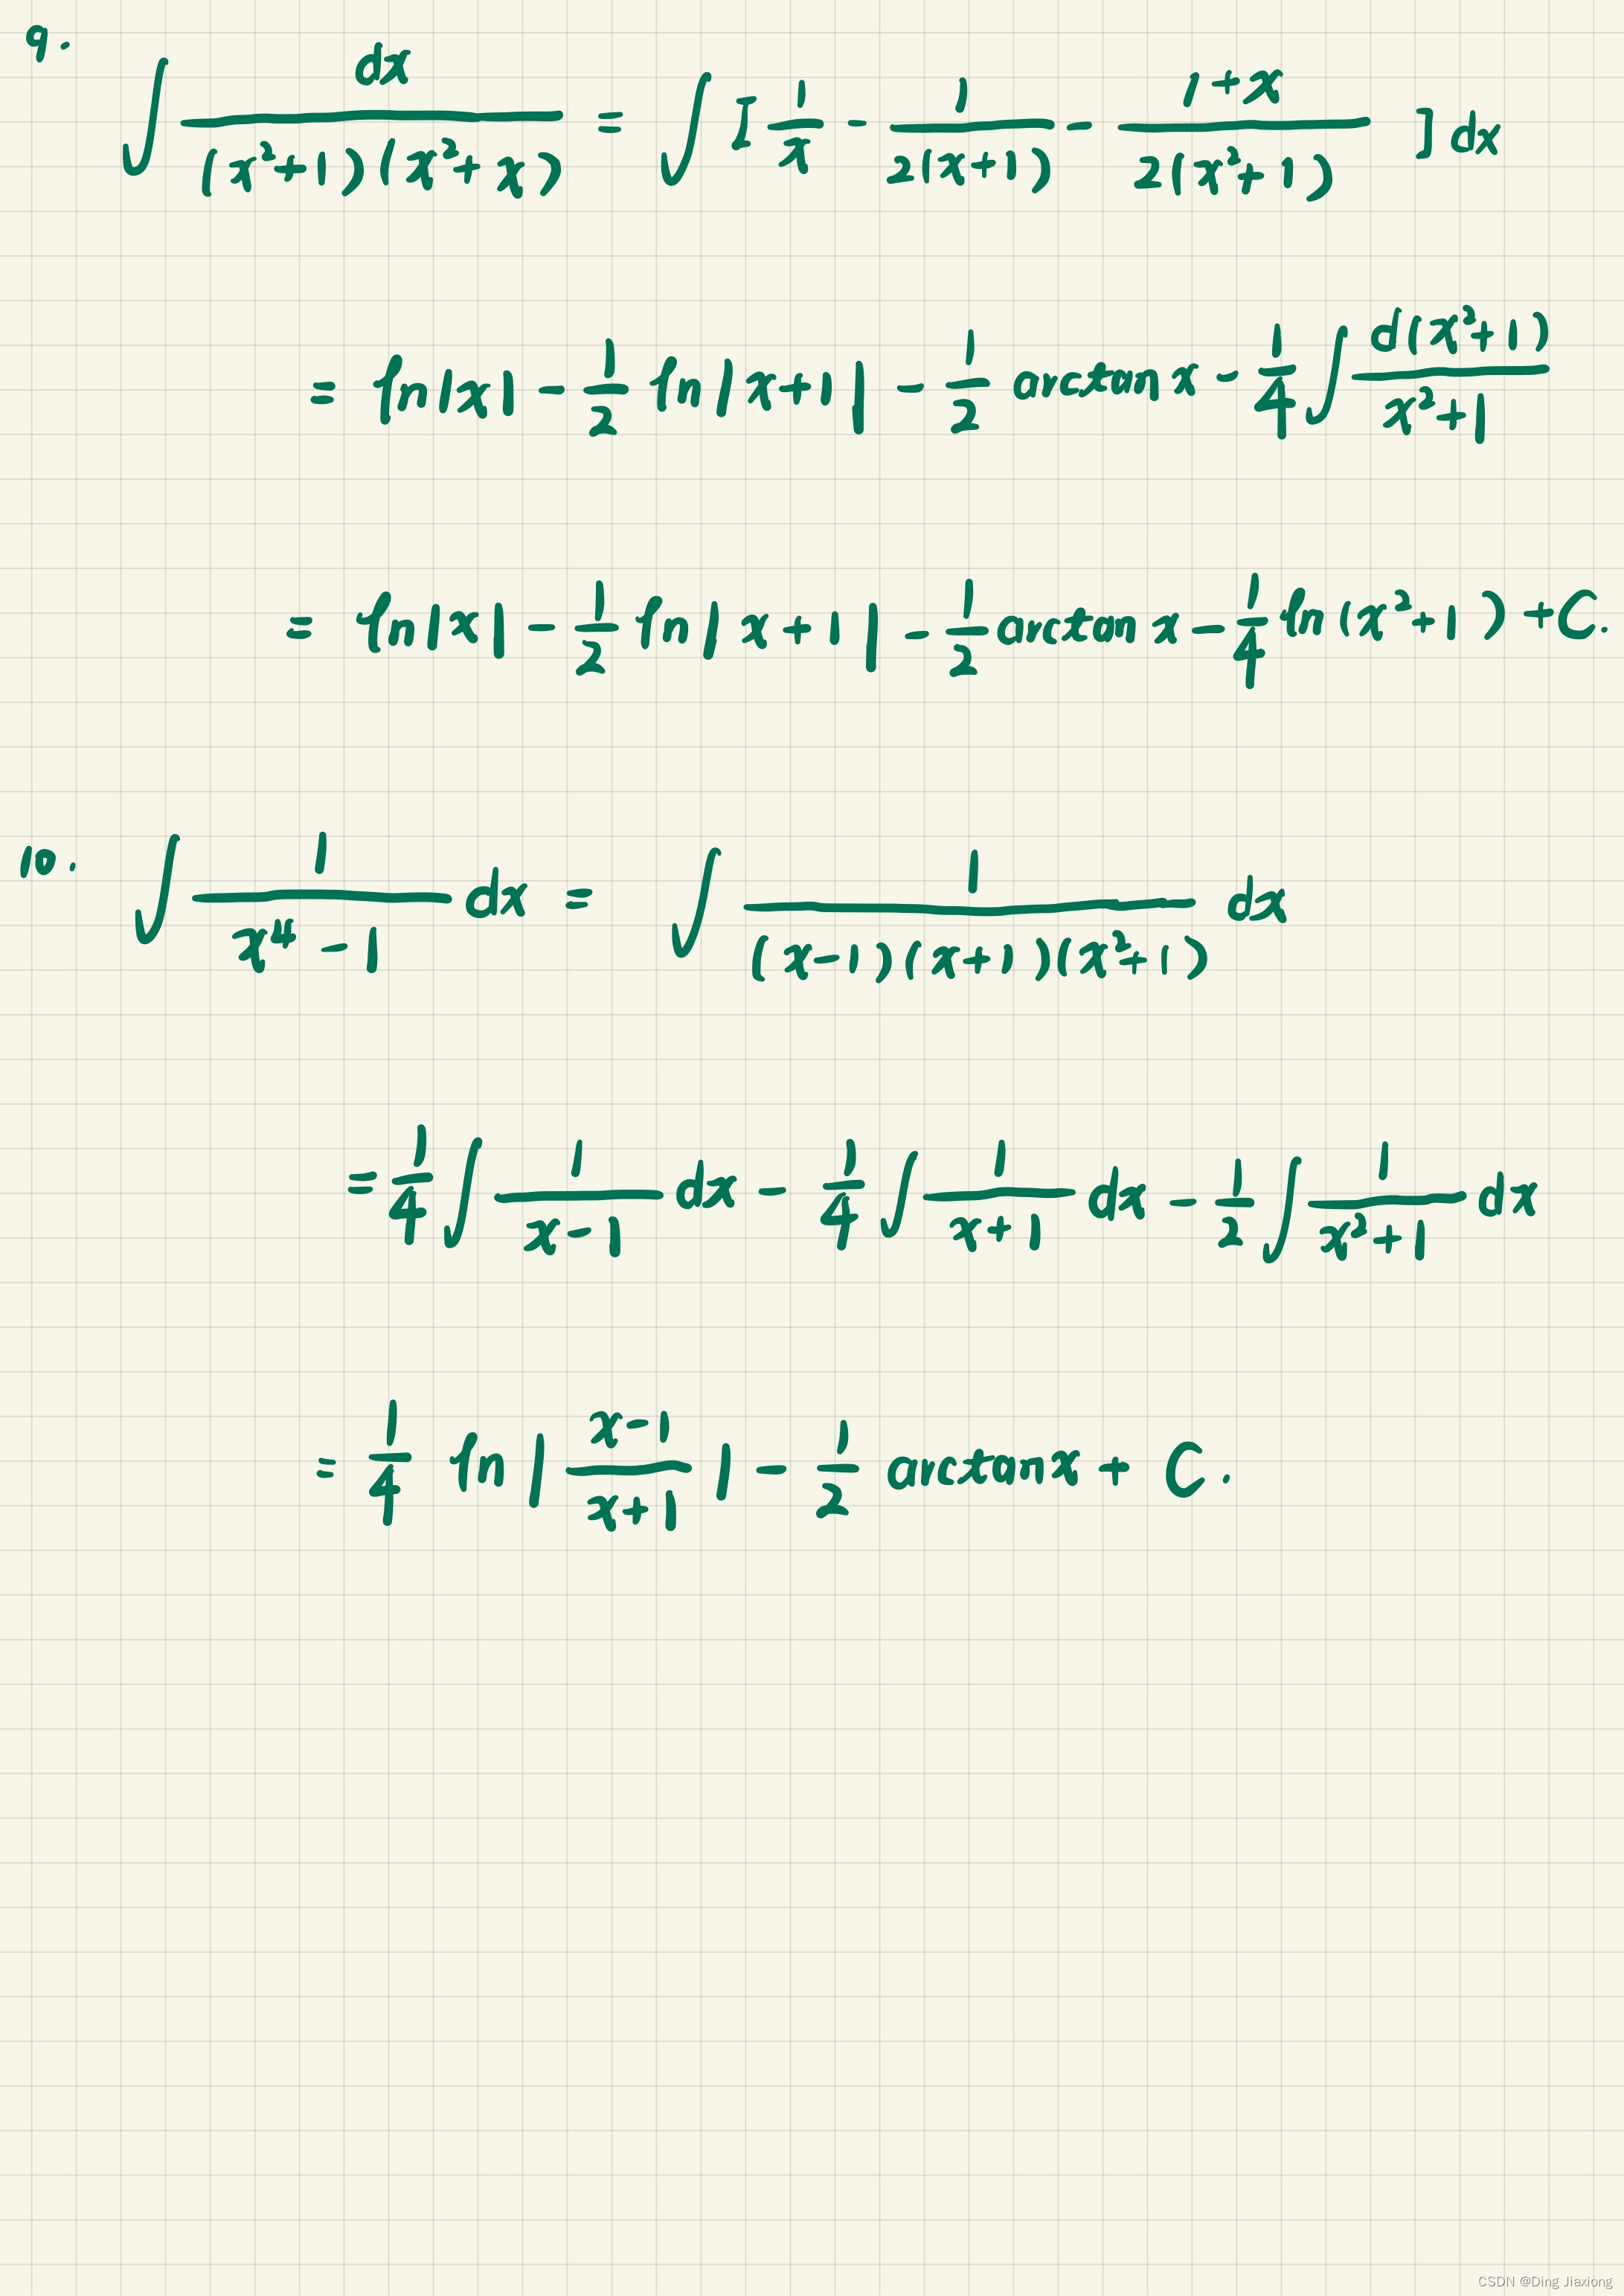 9.
∫ dx / ((x²+1)(x²+x)) = ∫ [ 1/x - 1/(2(x+1)) - (1+x)/(2(x²+1)) ] dx
= ln|x| - 1/2 ln|x+1| - 1/2 arctan x - 1/4 ∫ d(x²+1)/(x²+1)
= ln|x| - 1/2 ln|x+1| - 1/2 arctan x - 1/4 ln(x²+1) + C.
10. ∫ 1/(x⁴-1) dx = ∫ 1/((x-1)(x+1)(x²+1)) dx
= 1/4 ∫ 1/(x-1) dx - 1/4 ∫ 1/(x+1) dx - 1/2 ∫ 1/(x²+1) dx
= 1/4 ln|(x-1)/(x+1)| - 1/2 arctan x + C.
CSDN @Ding Jiaxiong